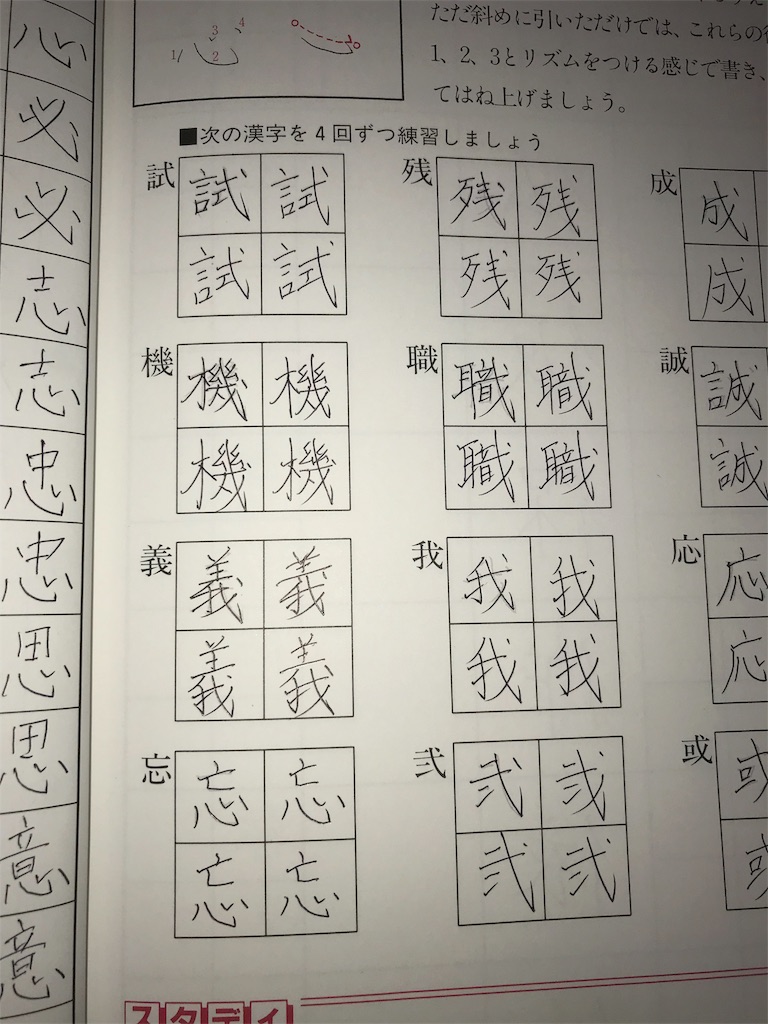 心
必
必
志
志
忠
忠
思
思
意
意
3 4
1 2
ただ斜めに引いただけでは、これらの
1、2、3とリズムをつける感じで書き、
てはね上げましょう。
■次の漢字を4回ずつ練習しましょう
試 試 試
試 試
残 残 残
残 残
成 成
成
機 機 機
機 機
職 職 職
職 職
誠 誠
誠
義 義 義
義 義
我 我 我
我 我
応 応
応
忘 忘 忘
忘 忘
弐 弐 弐
弐 弐
或 或
或
スタディ